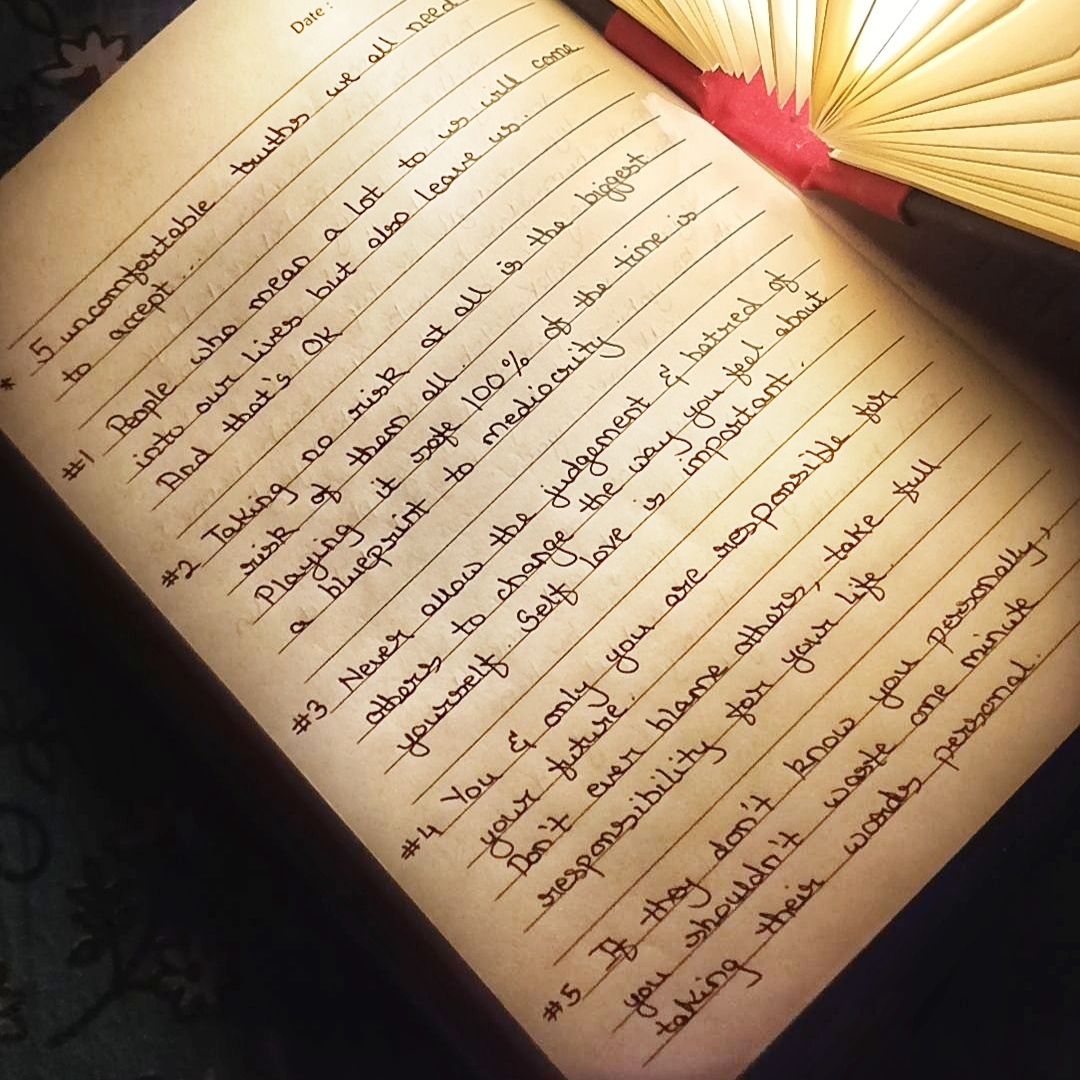 Date :
* 5 uncomfortable truths we all need
to accept ....
#1 People who mean a lot to us will come
into our lives but also leave us.
And that's OK
#2 Taking no risk at all is the biggest
risk of them all.
Playing it safe 100% of the time is
a blueprint to mediocrity
#3 Never allow the judgement & hatred of
others to change the way you feel about
yourself. Self love is important.
#4 You & only you are responsible for
your future.
Don't ever blame others, take full
responsibility for your life.
#5 If they don't know you personally,
you shouldn't waste one minute
taking their words personal.